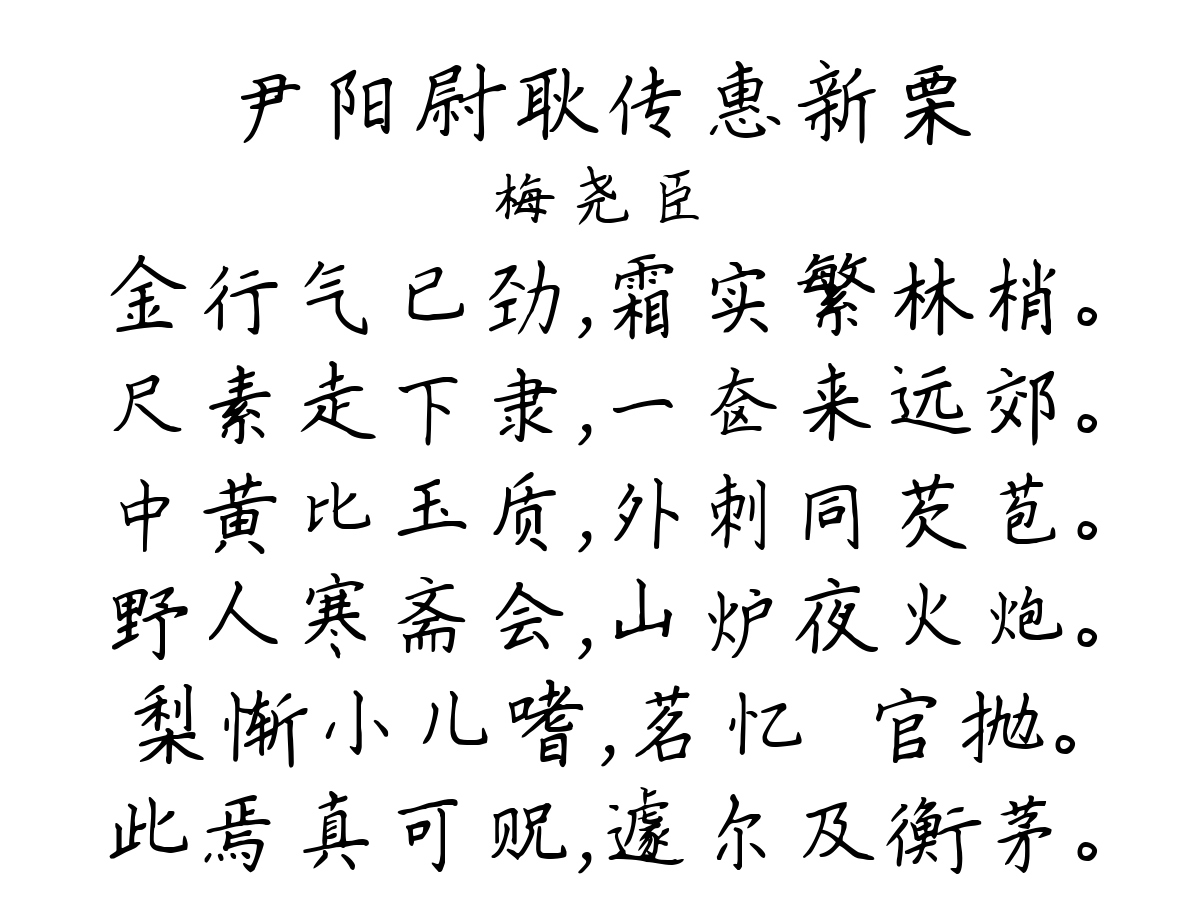 尹阳尉耿传惠新栗
梅尧臣
金行气已劲,霜实繁林梢。
尺素走下隶,一奁来远郊。
中黄比玉质,外刺同芡苞。
野人寒斋会,山炉夜火炮。
梨惭小儿嗜,茗忆 官抛。
此焉真可贶,遽尔及衡茅。